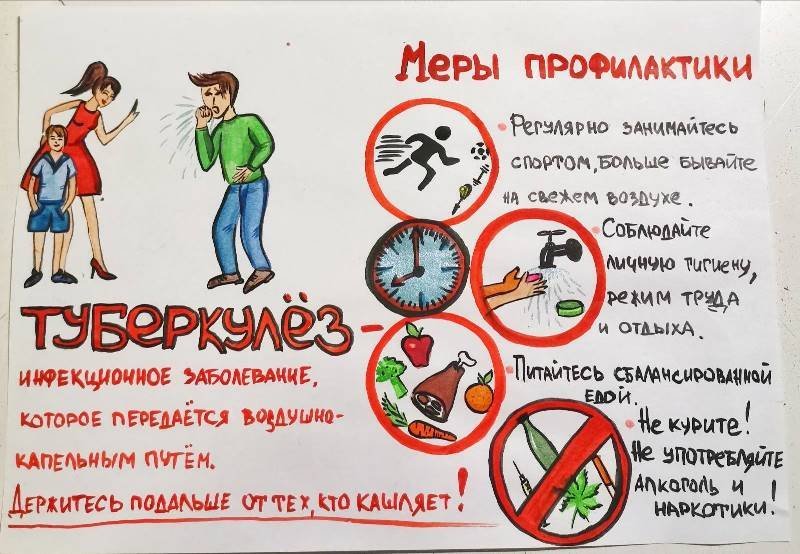 Меры профилактики
• Регулярно занимайтесь
спортом, больше бывайте
на свежем воздухе.
• Соблюдайте
личную гигиену,
режим труда
и отдыха.
• Питайтесь сбалансированной
едой.
• Не курите!
Не употребляйте
алкоголь и
наркотики!
Туберкулёз –
инфекционное заболевание,
которое передаётся воздушно-
капельным путём.
Держитесь подальше от тех, кто кашляет!